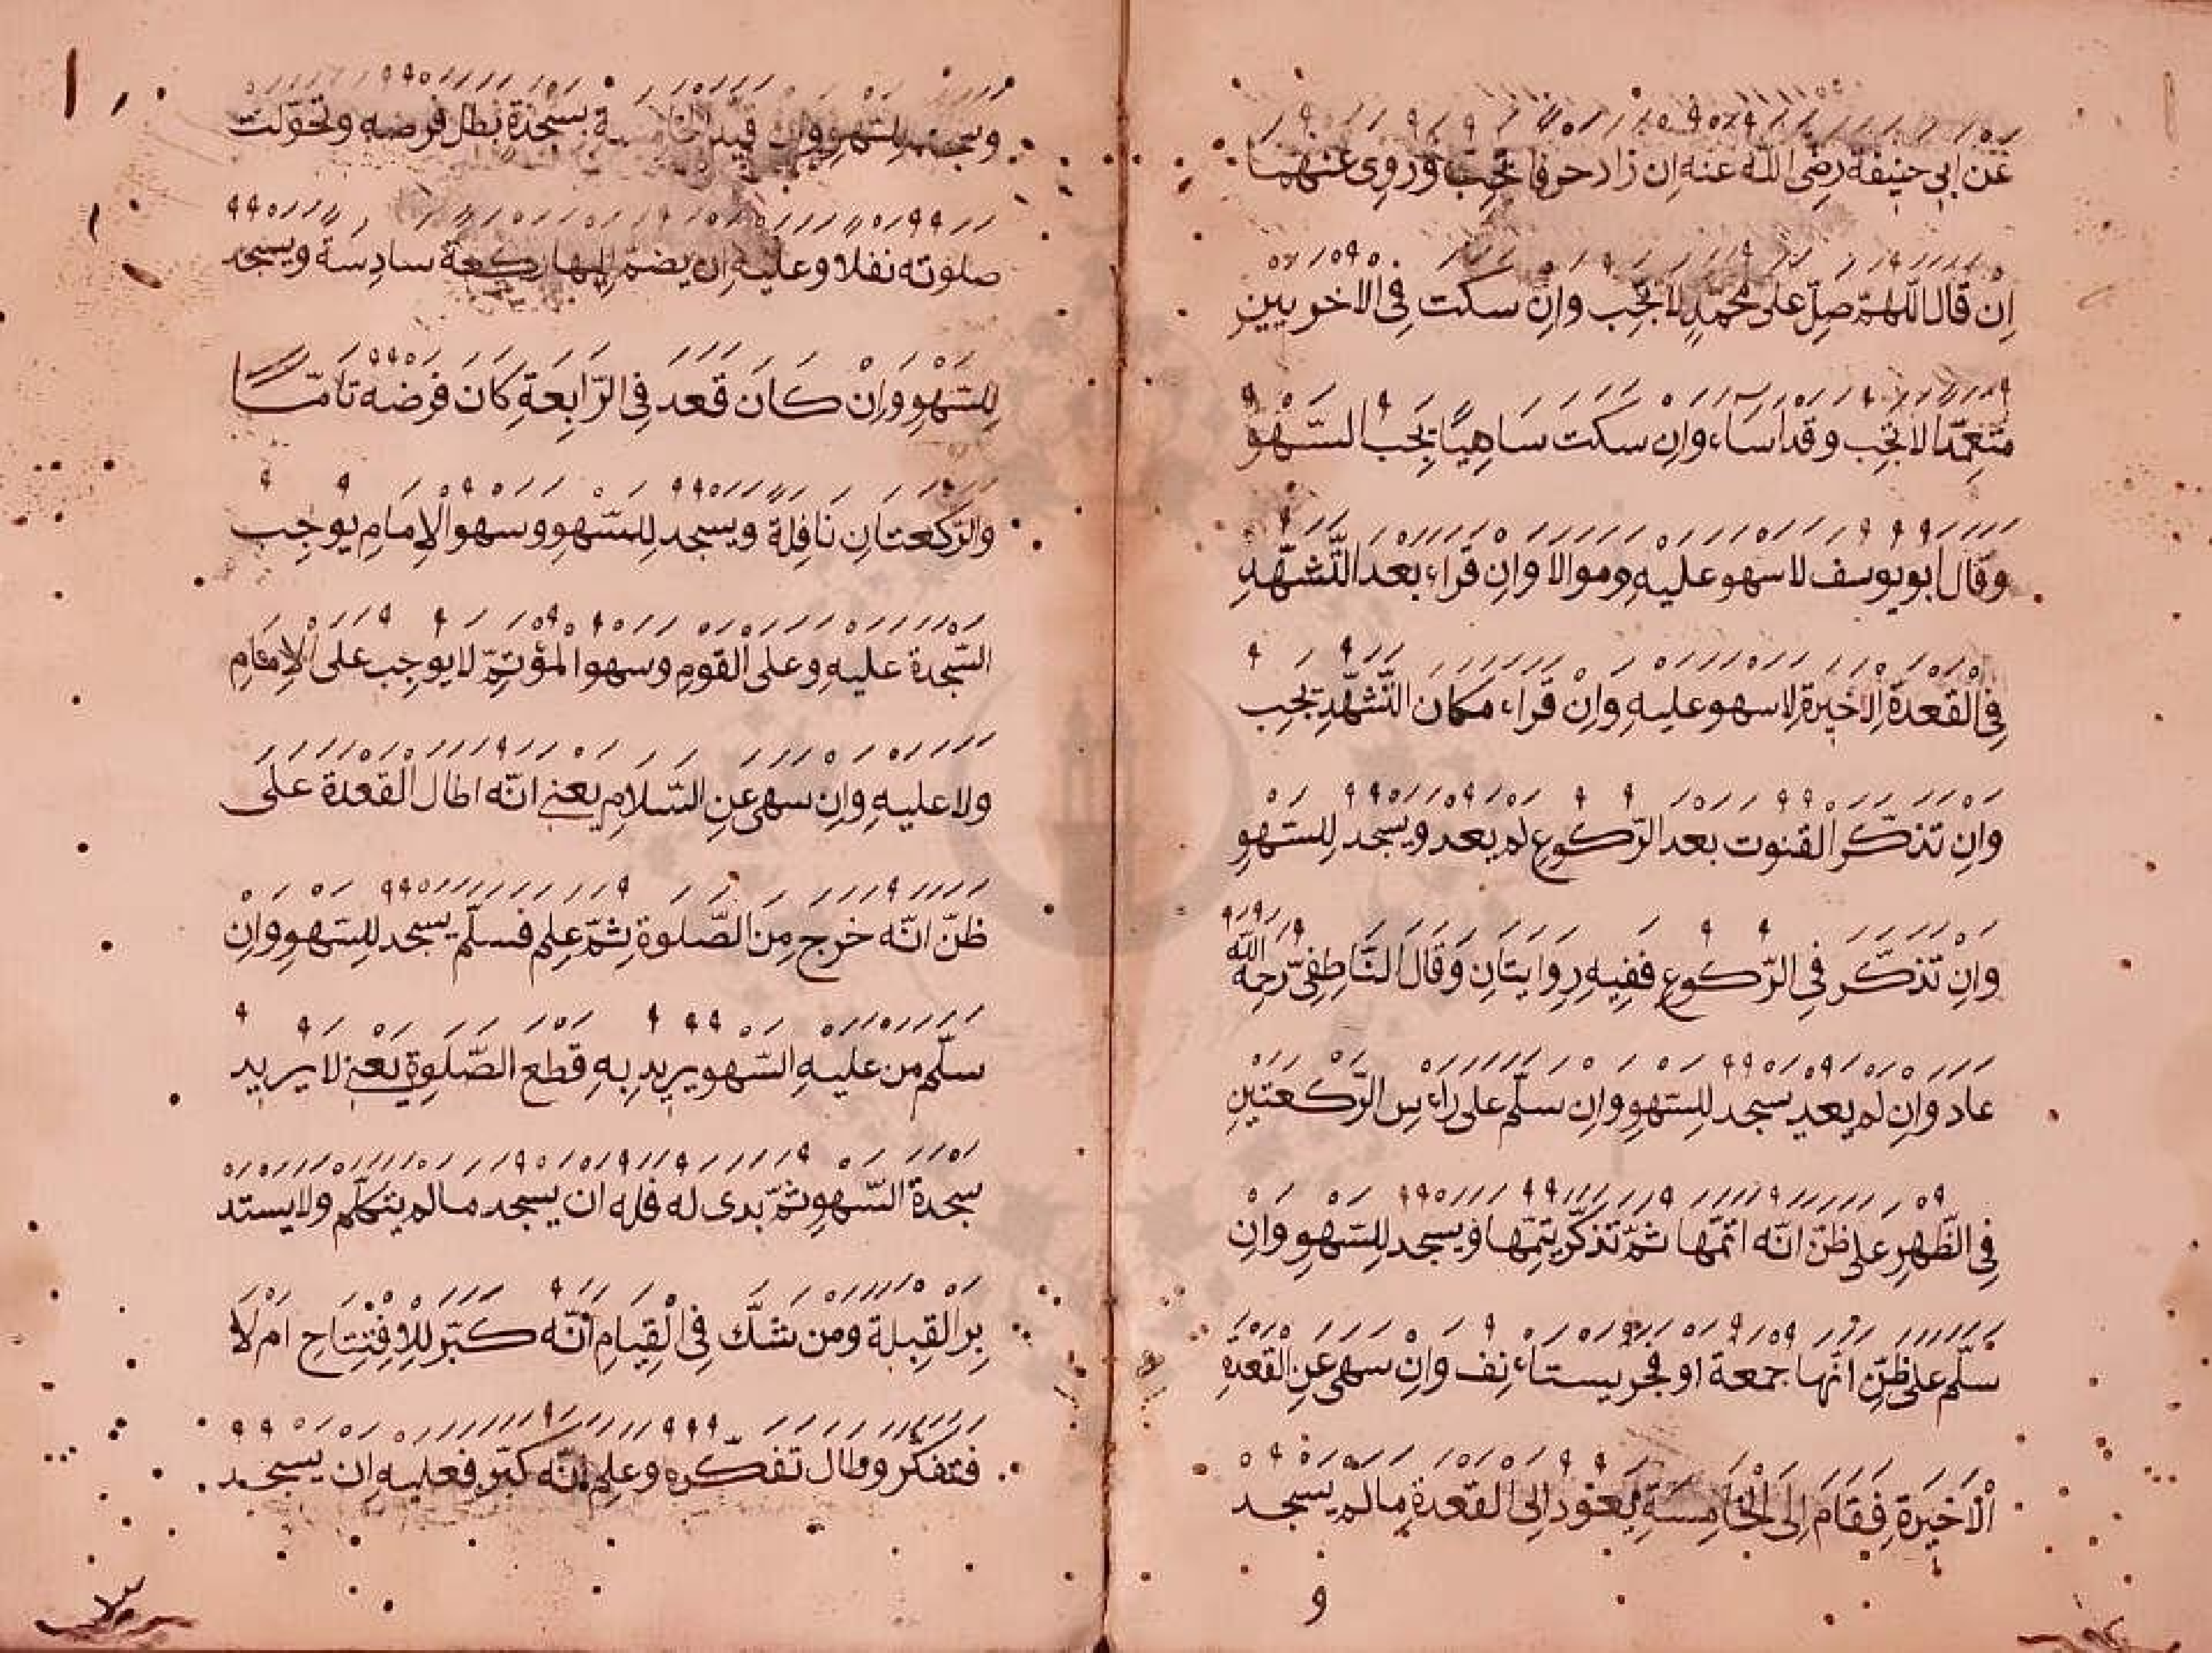 عن ابي حنيفة رضى الله عنه ان زاد حرفا تجب وروى عنهما
اِنْ قال اللّهمّ صلّ على محمّدٍ لا تجِب واِنْ سكت فِى الاخريين
متعمّدا لا تجِب وقد اساء واِن سكت ساهِيًا يجب السّهو
وقال ابو يوسف لا سهو عليهِ وموالا واِن قراء بعد التّشهّدِ
فِى القعدة الاخيرة لا سهو عليهِ واِنْ قراء مكان التّشهّدِ تجِب
واِن تذكّر القنوت بعد الرّكوعِ لم يعد ويسجد لِلسّهوِ
واِن تذكّر فِى الرّكوعِ ففِيهِ رِوايتانِ وقال النّاطِفِىّ رحمه الله
عاد واِن لم يعد يسجد لِلسّهوِ واِن سلّم على راءسِ الرّكعتينِ
فِى الظّهرِ على ظنّ انّه اتمّها ثمّ تذكّر يتِمّها ويسجد لِلسّهوِ واِن
سلّم على ظنّ انّها جمعة او فجر يستاءنِف واِن سهى عنِ القعدةِ
الاخيرةِ فقام اِلى الخامِسةِ يعود اِلى القعدةِ مالم يسجد
و
ويسجد لِلسّهوِ واِن قيّد الخامسة بسجدةٍ بطل فرضه وتحوّلت
صلوته نفلا وعليهِ ان يضمّ اِليها ركعة سادِسة ويسجد
لِلسّهوِ واِنْ كان قعد فِى الرّابِعةِ كان فرضه تامّا
والرّكعتانِ نافِلة ويسجد لِلسّهوِ وسهو الاِمامِ يوجِب
السّجدة عليهِ وعلى القومِ وسهو المؤتمّ لا يوجِب على الاِمامِ
ولا عليهِ واِن سهى عنِ السّلامِ يعنِى انّه اطال القعدة على
ظنّ انّه خرج مِن الصّلوةِ ثمّ علِم فسلّم يسجد لِلسّهوِ واِن
سلّم من عليهِ السّهو يرِيد بِهِ قطع الصّلوةِ يعنِى لا يرِيد
سجدة السّهوِ ثمّ بدى له فله ان يسجد مالم يتكلّم ولا يستد
بِرِ القِبلة ومن شكّ فِى القِيامِ انّه كبّر لِلاِفتِتاحِ ام لا
فتفكّر وطال تفكّره وعلِم انّه كبّر فعليهِ ان يسجد